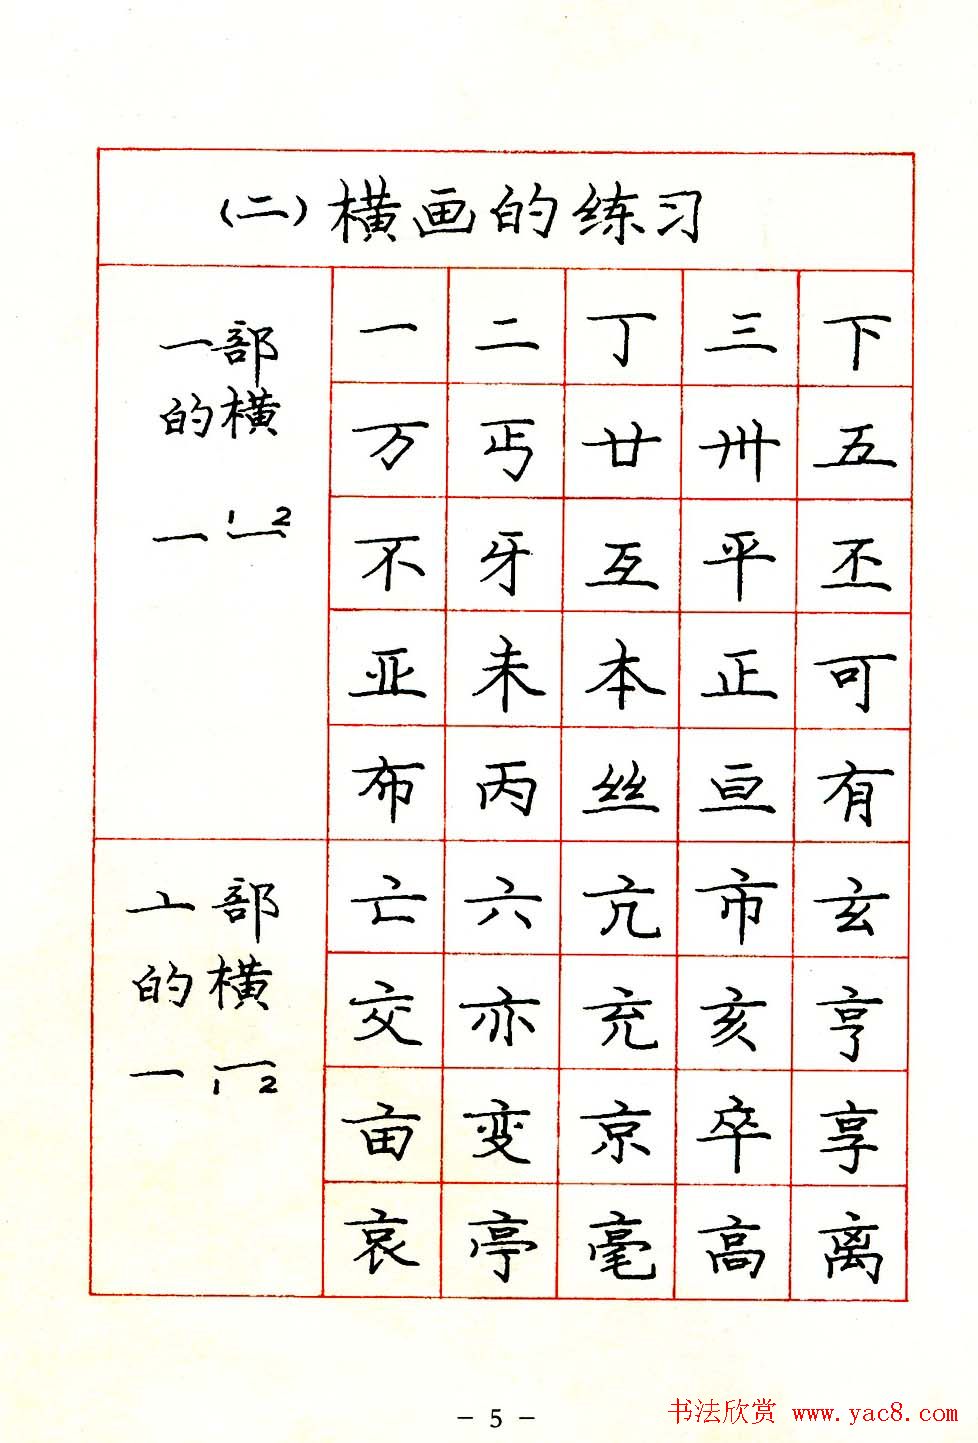 (二)横画的练习
一部
的横
一 1一2
一 二 丁 三 下
万 丐 廿 卅 五
不 牙 互 平 丕
亚 未 本 正 可
布 丙 丝 亘 有
亠部
的横
一 1一2
亡 六 亢 市 玄
交 亦 充 亥 亨
亩 变 京 卒 享
哀 亭 毫 高 离
- 5 -
书法欣赏 www.yac8.com